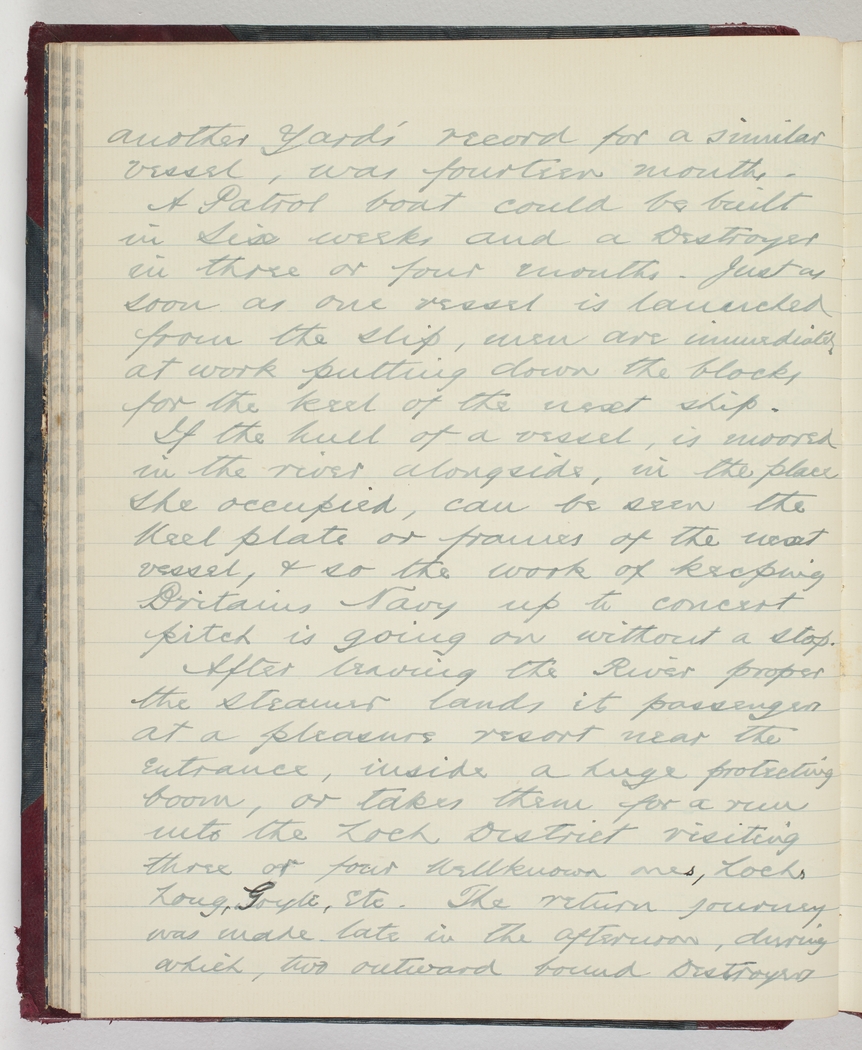 another Yard's record for a similar
vessel, was fourteen months.
A Patrol boat could be built
in Six weeks and a Destroyer
in three or four months. Just as
soon as one vessel is launched
from the slip, men are immediately
at work putting down the blocks
for the keel of the next ship.
If the hull of a vessel, is moored
in the river alongside, in the place
she occupied, can be seen the
Keel plate or frames of the next
vessel, & so the work of keeping
Britains Navy up to concert
pitch is going on without a stop.
After leaving the River proper
the steamer lands it passengers
at a pleasure resort near the
Entrance, inside a huge protecting
boom, or takes them for a run
into the Loch District visiting
three or four Wellknown ones, Lochs
Long, Goyle, Etc. The return journey
was made late in the afternoon, during
which, two outward bound Destroyers